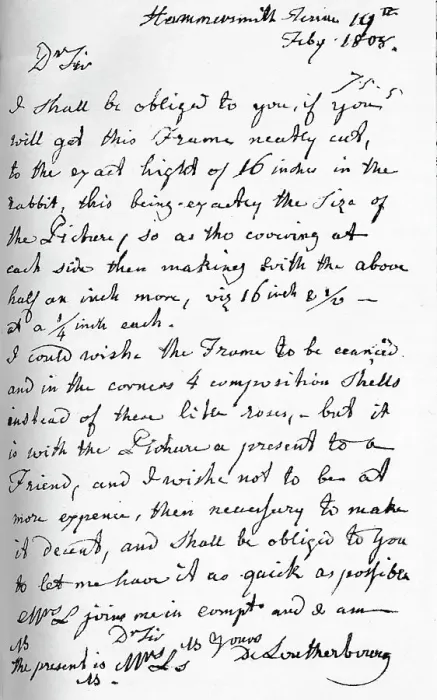 Hammersmith Terrace 19th
Feby. 1805.
Dr Sir
I shall be obliged to you, if you
will get this Frame neatly cut,
to the exact hight of 16 inches in the
rabbit, this being exactly the Size of
the Picture, so as the covering at
each side then making with the above
half an inch more, viz 16 inch & 1/2 —
at a 1/4 inch each.
I could wishe the Frame to be
and in the corners 4 composition Shells
instead of these like roses, - but it
is with the Picture a present to a
Friend, and I wishe not to be at
more expence, then necessary to make
it decent, and shall be obliged to you
to let me have it as quick as possible
Mrs L joins me in compts and I am
NB Dr Sir NB Yours
the present is Mrs Ls De Loutherbourg
NB.